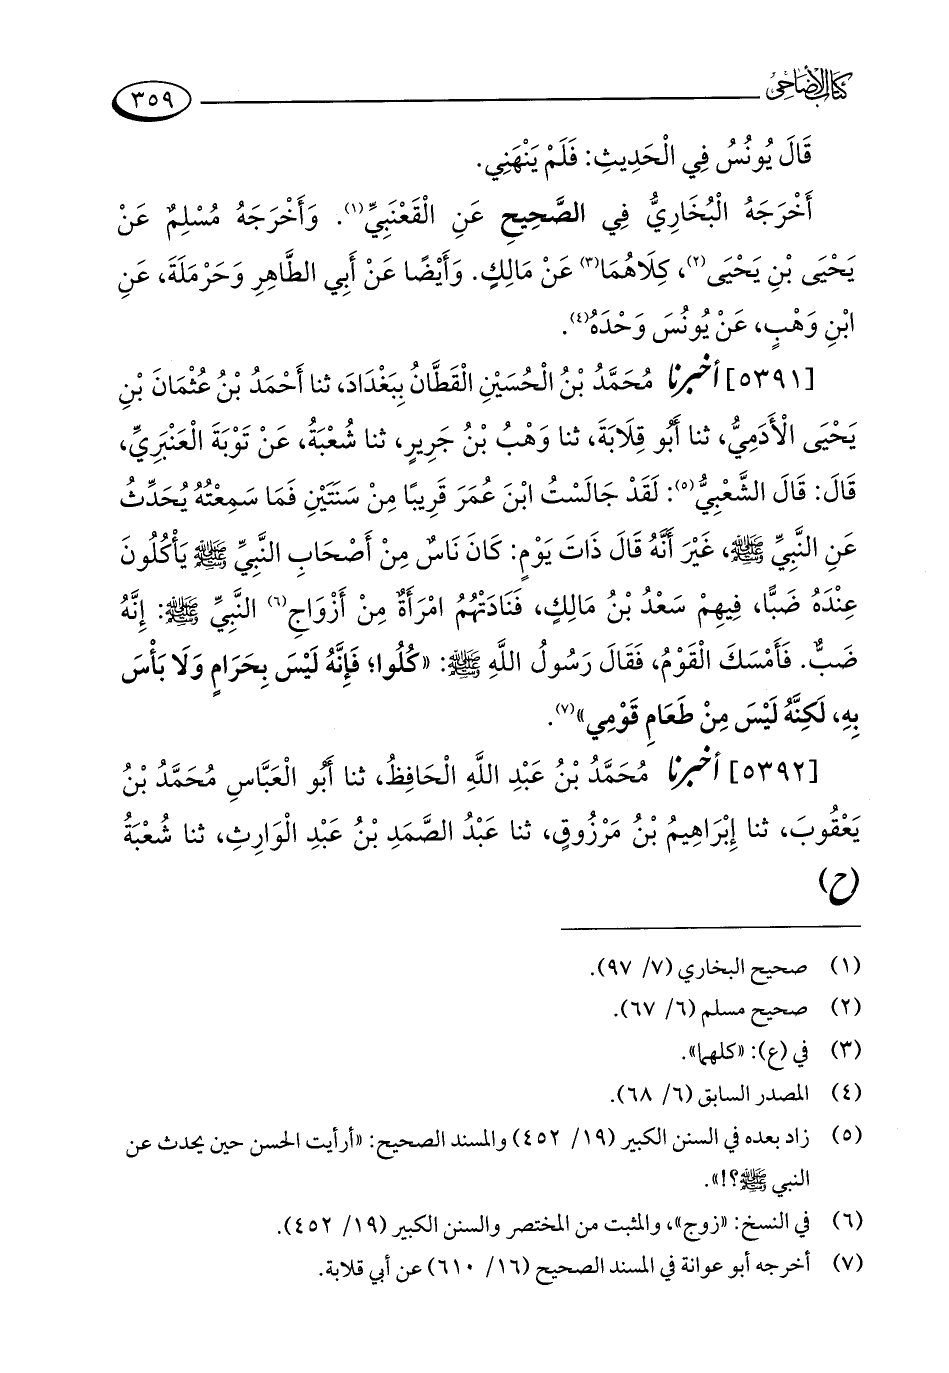 كتاب الأضاحي
٣٥٩
قَالَ يُونُسُ فِي الْحَدِيثِ: فَلَمْ يَنْهَنِي.
أَخْرَجَهُ الْبُخَارِيُّ فِي الصَّحِيحِ عَنِ الْقَعْنَبِيِّ(١). وَأَخْرَجَهُ مُسْلِمٌ عَنْ
يَحْيَى بْنِ يَحْيَى(٢)، كِلَاهُمَا(٣) عَنْ مَالِكٍ. وَأَيْضًا عَنْ أَبِي الطَّاهِرِ وَحَرْمَلَةَ، عَنِ
ابْنِ وَهْبٍ، عَنْ يُونُسَ وَحْدَهُ(٤).
[٥٣٩١] أخبرنا مُحَمَّدُ بْنُ الْحُسَيْنِ الْقَطَّانُ بِبَغْدَادَ، ثنا أَحْمَدُ بْنُ عُثْمَانَ بْنِ
يَحْيَى الْأَدَمِيُّ، ثنا أَبُو قِلَابَةَ، ثنا وَهْبُ بْنُ جَرِيرٍ، ثنا شُعْبَةُ، عَنْ تَوْبَةَ الْعَنْبَرِيِّ،
قَالَ: قَالَ الشَّعْبِيُّ(٥): لَقَدْ جَالَسْتُ ابْنَ عُمَرَ قَرِيبًا مِنْ سَنَتَيْنِ فَمَا سَمِعْتُهُ يُحَدِّثُ
عَنِ النَّبِيِّ ﷺ، غَيْرَ أَنَّهُ قَالَ ذَاتَ يَوْمٍ: كَانَ نَاسٌ مِنْ أَصْحَابِ النَّبِيِّ ﷺ يَأْكُلُونَ
عِنْدَهُ ضَبًّا، فِيهِمْ سَعْدُ بْنُ مَالِكٍ، فَنَادَتْهُمُ امْرَأَةٌ مِنْ أَزْوَاجِ(٦) النَّبِيِّ ﷺ: إِنَّهُ
ضَبٌّ. فَأَمْسَكَ الْقَوْمُ، فَقَالَ رَسُولُ اللَّهِ ﷺ: «كُلُوا؛ فَإِنَّهُ لَيْسَ بِحَرَامٍ وَلَا بَأْسَ
بِهِ، لَكِنَّهُ لَيْسَ مِنْ طَعَامِ قَوْمِي»(٧).
[٥٣٩٢] أخبرنا مُحَمَّدُ بْنُ عَبْدِ اللَّهِ الْحَافِظُ، ثنا أَبُو الْعَبَّاسِ مُحَمَّدُ بْنُ
يَعْقُوبَ، ثنا إِبْرَاهِيمُ بْنُ مَرْزُوقٍ، ثنا عَبْدُ الصَّمَدِ بْنُ عَبْدِ الْوَارِثِ، ثنا شُعْبَةُ
(ح)
(١) صحيح البخاري (٧/ ٩٧).
(٢) صحيح مسلم (٦/ ٦٧).
(٣) في (ع): «كلهما».
(٤) المصدر السابق (٦/ ٦٨).
(٥) زاد بعده في السنن الكبير (١٩/ ٤٥٢) والمسند الصحيح: «أرأيت الحسن حين يحدث عن
النبي ﷺ؟!».
(٦) في النسخ: «زوج»، والمثبت من المختصر والسنن الكبير (١٩/ ٤٥٢).
(٧) أخرجه أبو عوانة في المسند الصحيح (١٦/ ٦١٠) عن أبي قلابة.